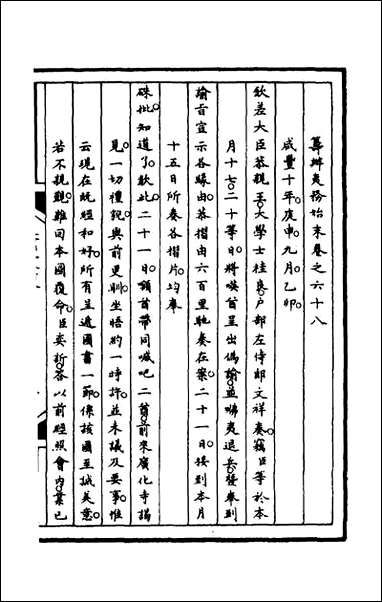 籌辦夷務始末卷之六十八
咸豐十年庚申九月乙卯
欽差大臣恭親王大學士桂良戶部左侍郎文祥奏竊臣等於本
月十七二十等日將㗸首呈出僞諭並嘓夷退兵後奉到
諭旨宣示各緣由恭摺由六百里馳奏在案二十一日接到本月
十五日所奏各摺片均奉
硃批知道了欽此二十一日㗸首帶同㖑吧二酋前來廣化寺謁
見一切禮貌與前更馴坐晤約一時許並未議及要事惟
云現在既經和好所有呈遞國書一節係該國至誠美意
若不親覲難回本國覆命臣奕訢答以前經照會內業已